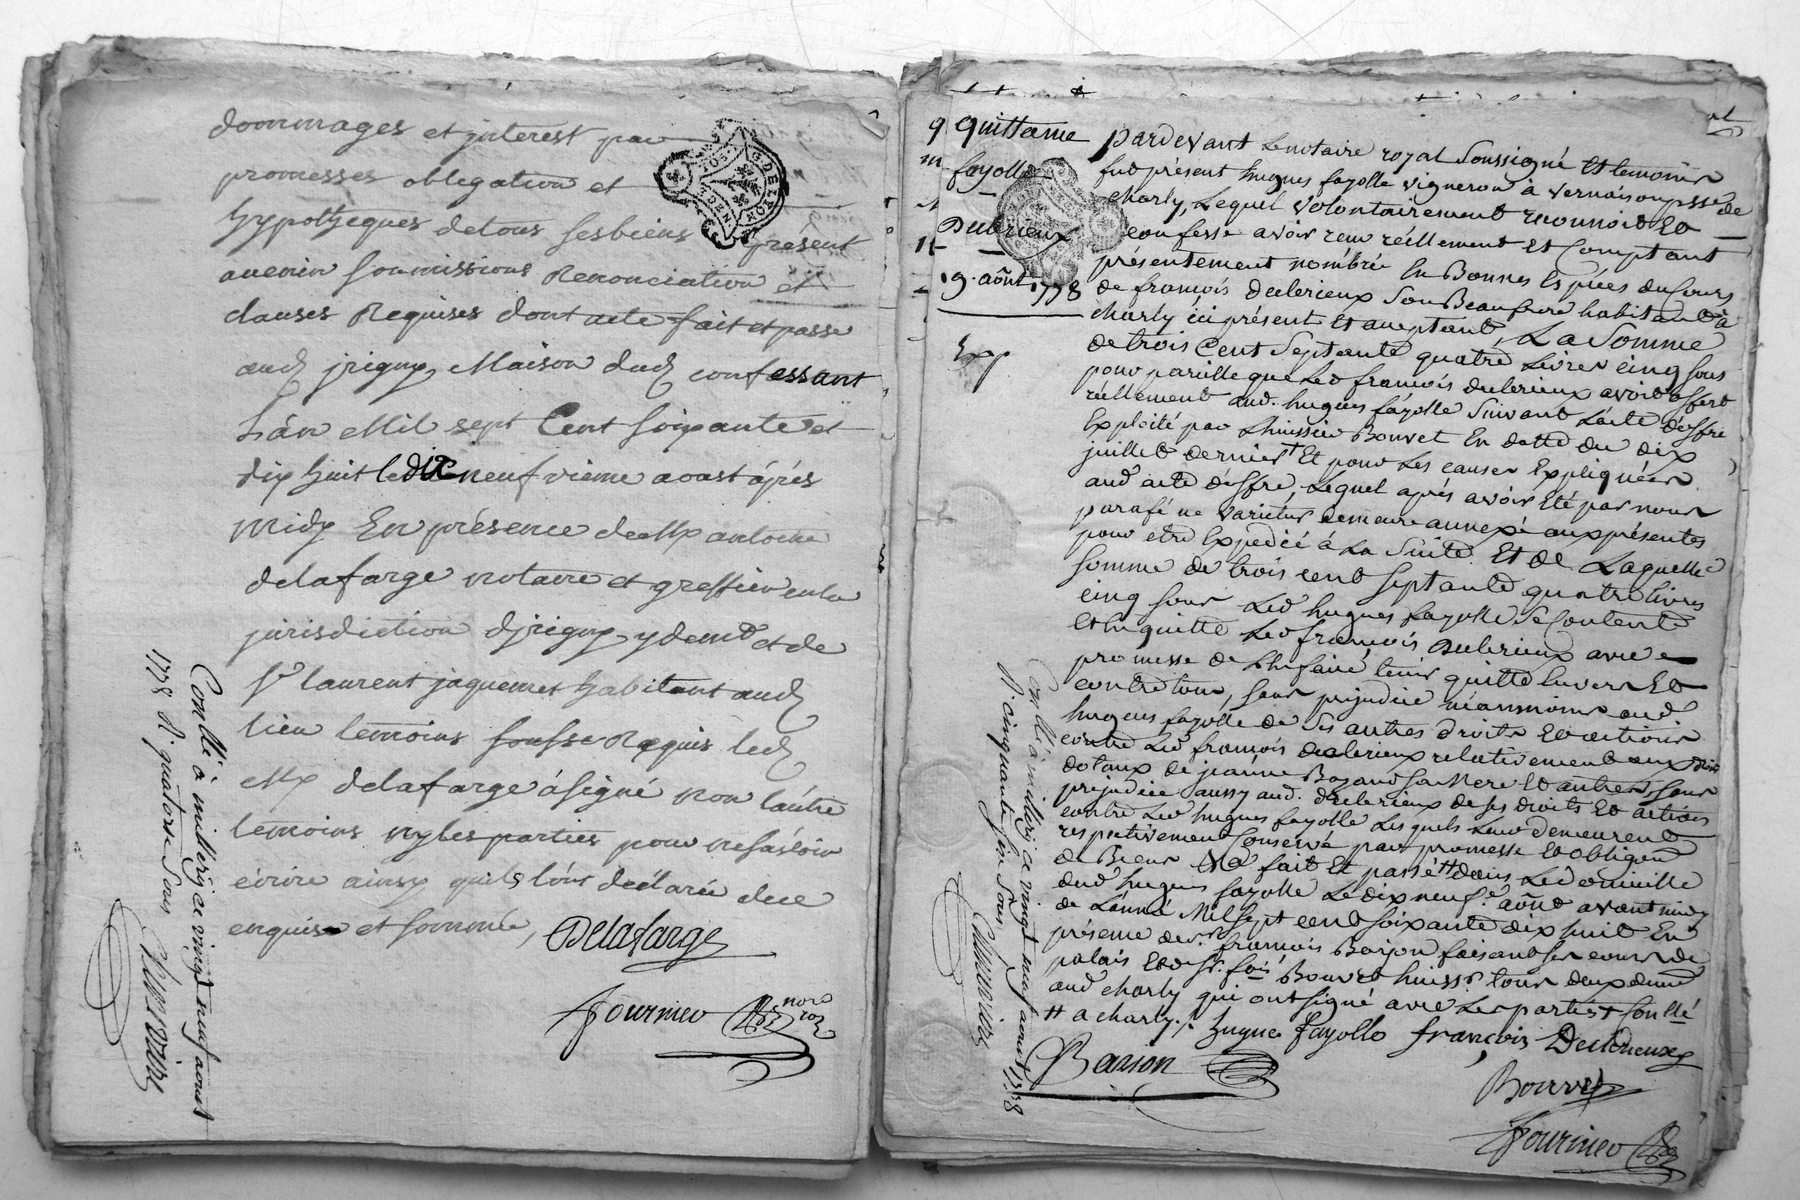 dommages et jnterest par
promesses obligation et
hypotheques detous sesbiens présent
avenir soumissions Renonciation et
clauses Requises dont acte fait et passé
aud jrigny Maison dud confessant
Lán Mil sept Cent soixante et
dix huit le dix neufvieme aoust áprés
Midy En présence de Me antoine
delafarge notaire et greffier enla
jurisdiction djrigny y demt et de
sr laurent jaquemet habitant aud
lieu temoins soussr Requis led
Me delafarge á signé non láutre
temoins ny les parties pour ne sávoir
écrire ainsy quils lónt declaré de ce
enquis et sommé,
Delafarge
fournier
nore
roal
Conllé à millery ce vingt neuf aoust
1778 R. quatorze sous
quittance
fayolle
Declerieux
19. août 1778
Exp
pardevant Le notaire royal soussigné Et temoins
fut présent hugues fayolle vigneron à vernaison psse de
charly, Lequel volontairement reconnoit Et
confesse avoir reçu réellement Et Comptant
présentement nombrée En Bonnes Espéces du Cours
de françois declerieux son Beaufrere habitant à
charly ici présent Et acceptant, La Somme
de trois Cent Septante quatre Livres cinq sous
pour pareille que Led françois declerieux avoit offert
réellement aud. hugues fayolle Suivant L'acte d'offre
Exploité par L'huissier Bouvet En datte du dix
juillet dernier Et pour Les causes Expliquées
aud acte d'offre, Lequel aprés avoir Eté par nous
parafé ne varietur demeure annexé aux présentes
pour etre Expedié à La Suite Et de Laquelle
somme de trois cent septante quatre livres
cinq sous Led hugues fayolle Se Contente
Et En quitte Led françois declerieux avec
promesse de L'En faire tenir quitte Envers Et
contre tous, sans prejudice néanmoins aud.
hugues fayolle de ses autres droits Et actions
contre Led françois declerieux relativement aux droits
dotaux de jeanne Bazand sa Mere Et autres, sans
prejudice aussy aud. declerieux de ses droits Et actions
contre Led hugues fayolle Lesquels Leur demeurent
respectivement Conservé par promesse Et obligaon
de Biens fait Et passé dans Led domicille
dud hugues fayolle Le dix neuf août avant midy
de L'année Mil sept cent soixante dix huit En
présence de sr. françois Barjon faisant ses cours de
palais Et de sr. fois Bouvet huissr. tous deux demt
aud charly qui ont signé avec Les parties
a charly./. hugue fayolle françois Declerieux
Barion
Bouvet
fournier
Conllé à millery ce vingt neuf aoust 1778
R. cinquante six sous